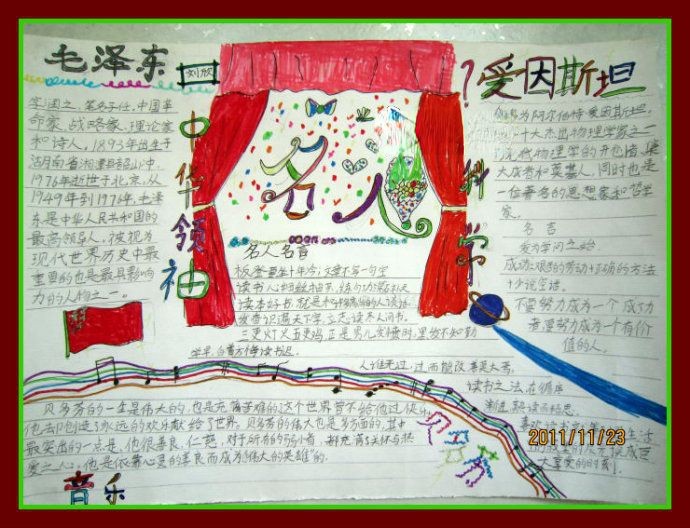 毛泽东
刘欣
字润之，笔名子任，中国革
命家、战略家、理论家
和诗人，1893年出生于
湖南省湘潭县韶山冲，
1976年逝世于北京，从
1949年到1976年，毛泽
东是中华人民共和国的
最高领导人，被视为
现代世界历史中最
重要的也是最具影响
力的人物之一。
中华领袖
名人
名人名言
板凳要坐十年冷，文章不写一句空
三更灯火五更鸡，正是男儿发愤时，黑发不知勤
学早，白首方悔读书迟。
人谁无过，过而能改，善莫大焉。
读书之法，在循序
渐进，熟读而精思。
科学
爱因斯坦
为阿尔伯特·爱因斯坦，
十大杰出物理学家之一，
现代物理学的开创者、集
大成者和奠基人，同时也是
一位著名的思想家和哲学
家。
名言
成功=艰苦的劳动+正确的方法
+少说空话。
不要努力成为一个成功
者，要努力成为一个有价
值的人。
贝多芬的一生是伟大的，也是充满苦难的，这个世界曾不给他过快乐，
他却创造了永远的欢乐献给了世界。贝多芬的伟大也是多方面的，其中
最突出的一点是，他很善良、仁慈，对于所有的弱小者，都充满了关怀与热
爱之心。他是依靠心灵的善良而成为"伟大的英雄"的。
贝多芬
音乐
2011/11/23